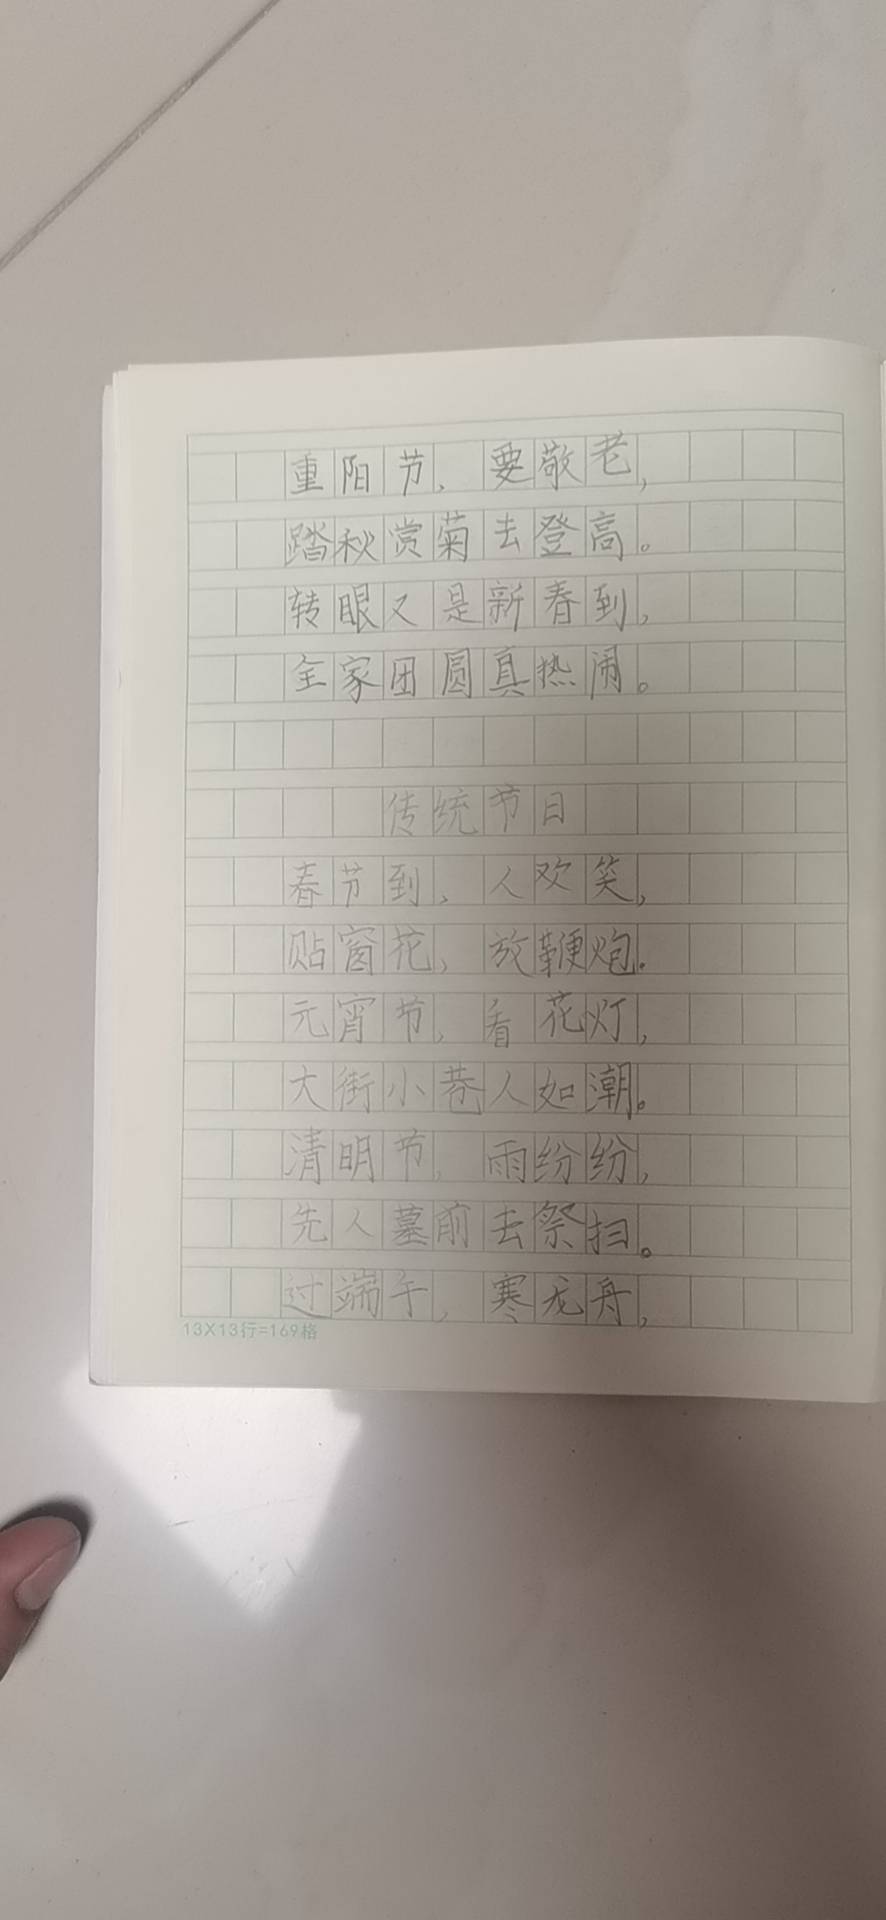 重阳节，要敬老，
踏秋赏菊去登高。
转眼又是新春到，
全家团圆真热闹。
传统节日
春节到，人欢笑，
贴窗花，放鞭炮.
元宵节，看花灯，
大街小巷人如潮。
清明节，雨纷纷，
先人墓前去祭扫。
过端午，寒龙舟，
13X13行=169格